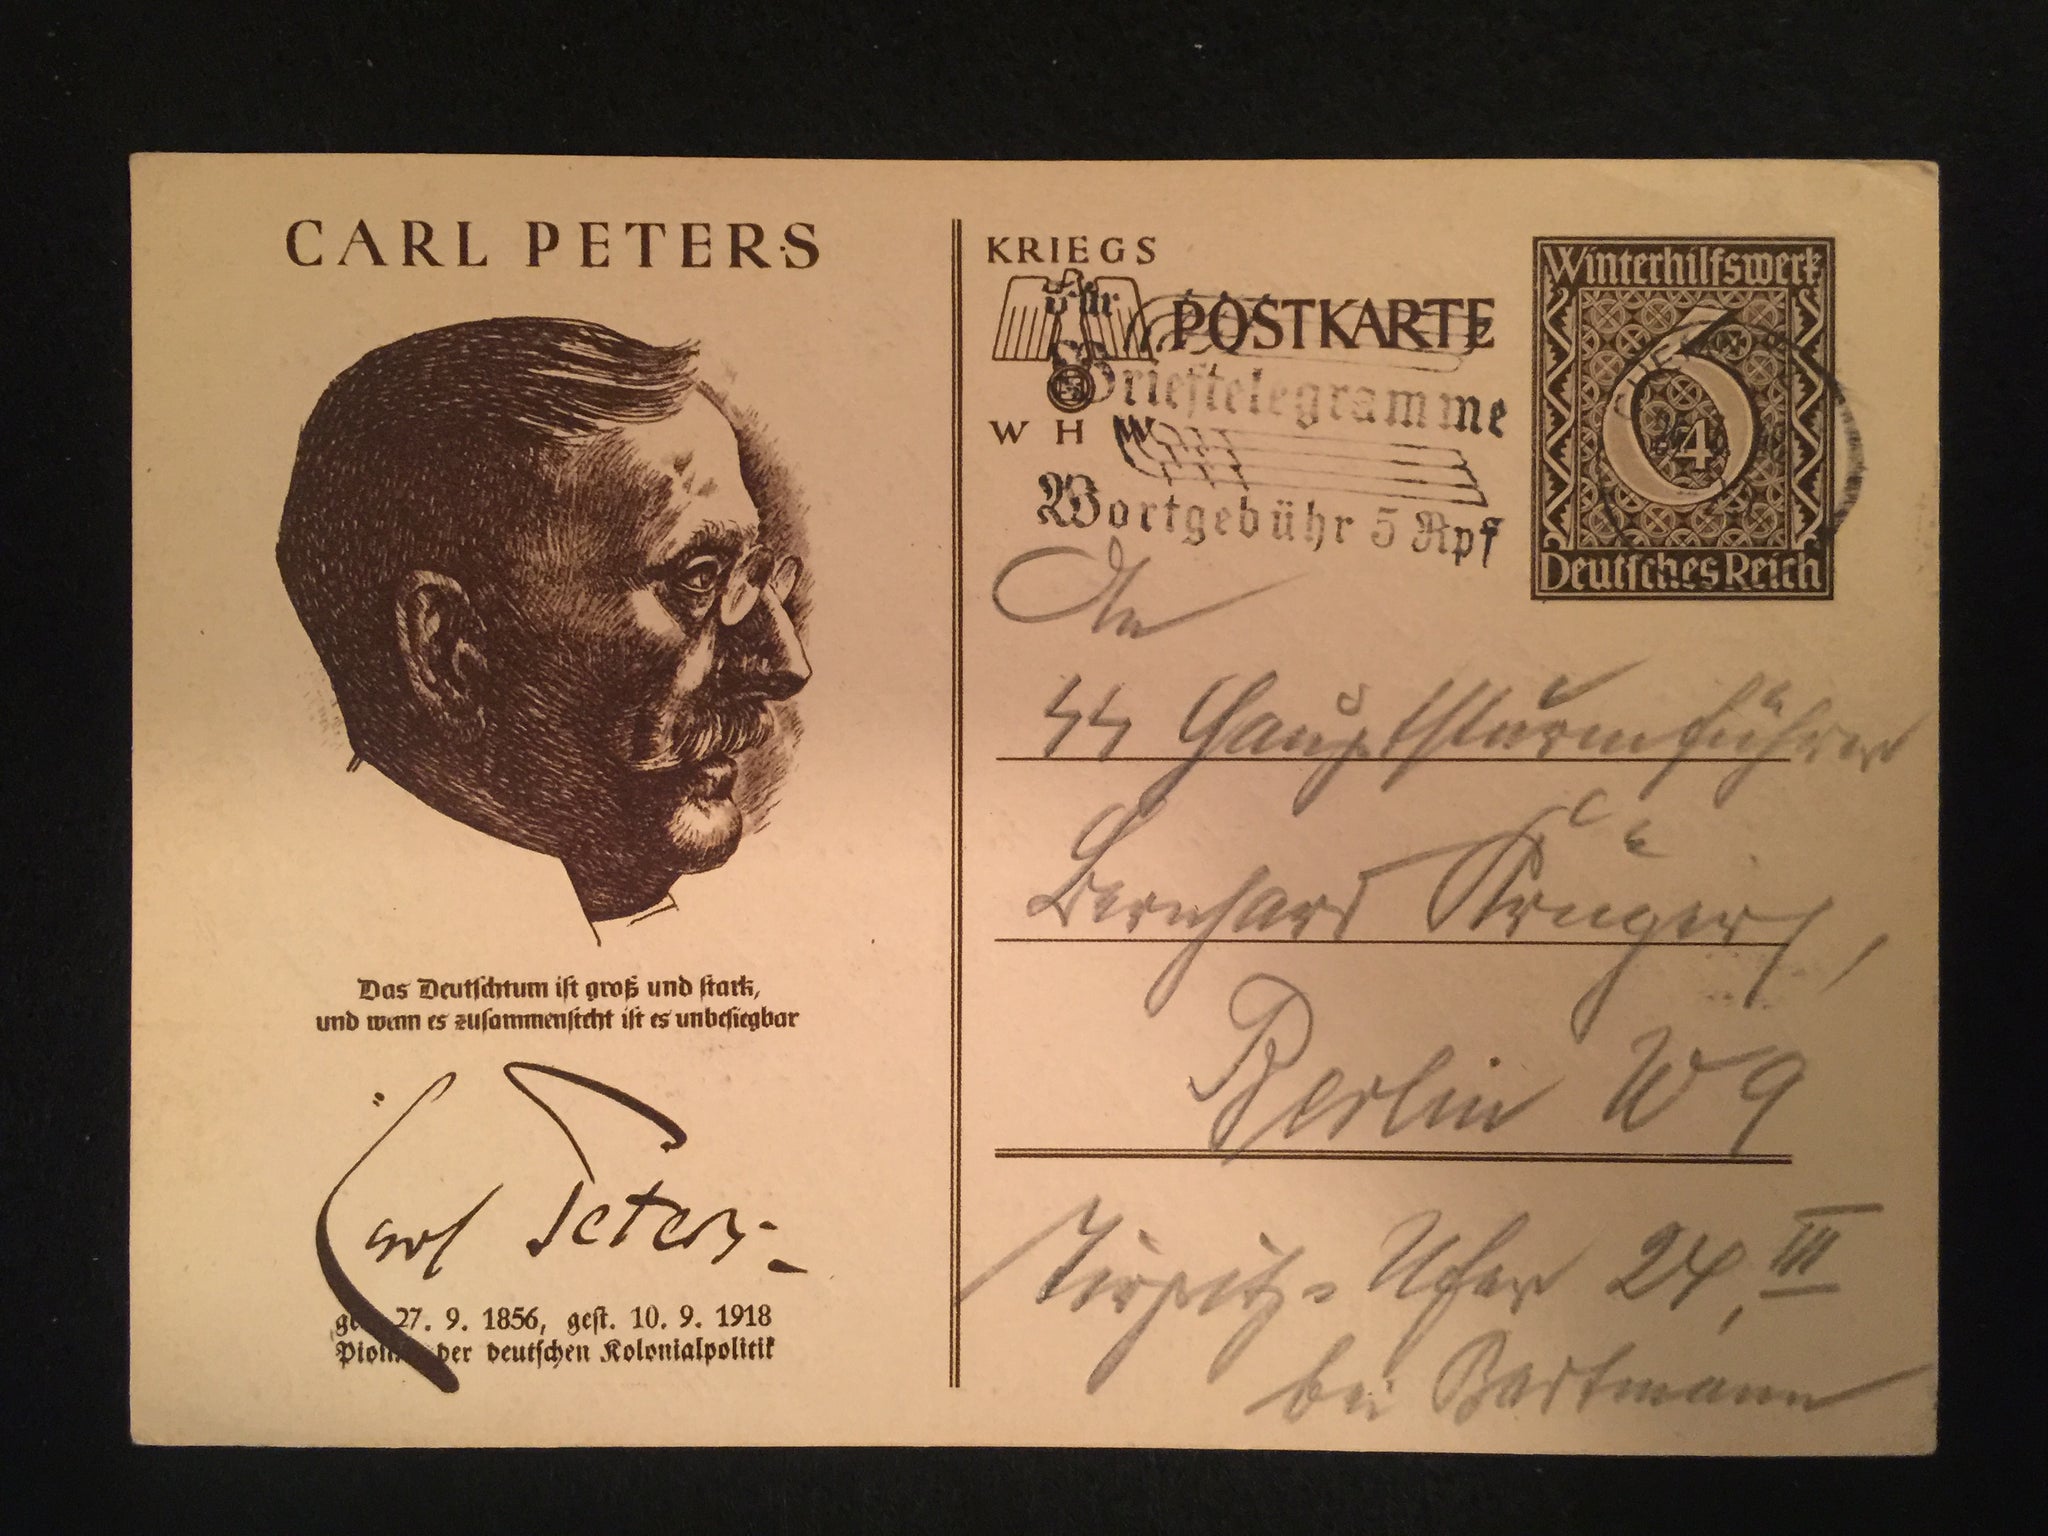 CARL PETERS
Das Deutschtum ist groß und stark,
und wenn es zusammensteht ist es unbesiegbar
Carl Peters
27. 9. 1856, gest. 10. 9. 1918
der deutschen Kolonialpolitik
KRIEGS
POSTKARTE
WHW
für
Brieftelegramme
Wortgebühr 5 Rpf
Winterhilfswerk
6
4
Deutsches Reich
An
SS Hauptsturmführer
Bernhard Krüger,
Berlin W 9
Tirpitz-Ufer 24, III
bei Bartmann